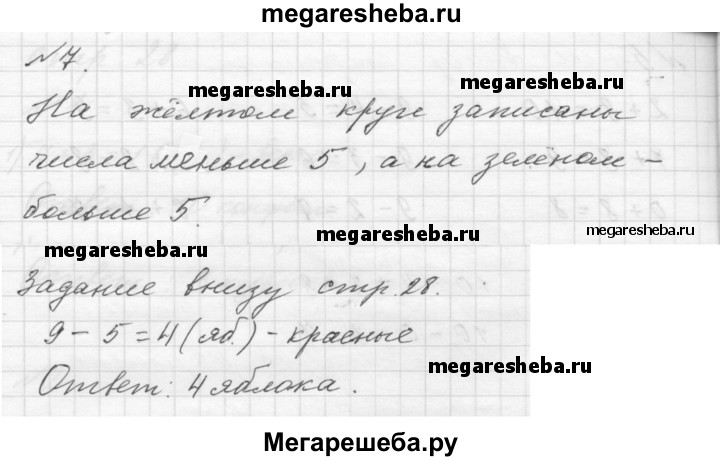 megaresheba.ru
№ 7.
megaresheba.ru megaresheba.ru
На жёлтом круге записаны
числа меньше 5, а на зелёном –
больше 5.
megaresheba.ru megaresheba.ru megaresheba.ru
Задание внизу стр. 28.
9 – 5 = 4 (яб.) – красные
megaresheba.ru
Ответ: 4 яблока.
Мегарешеба.ру